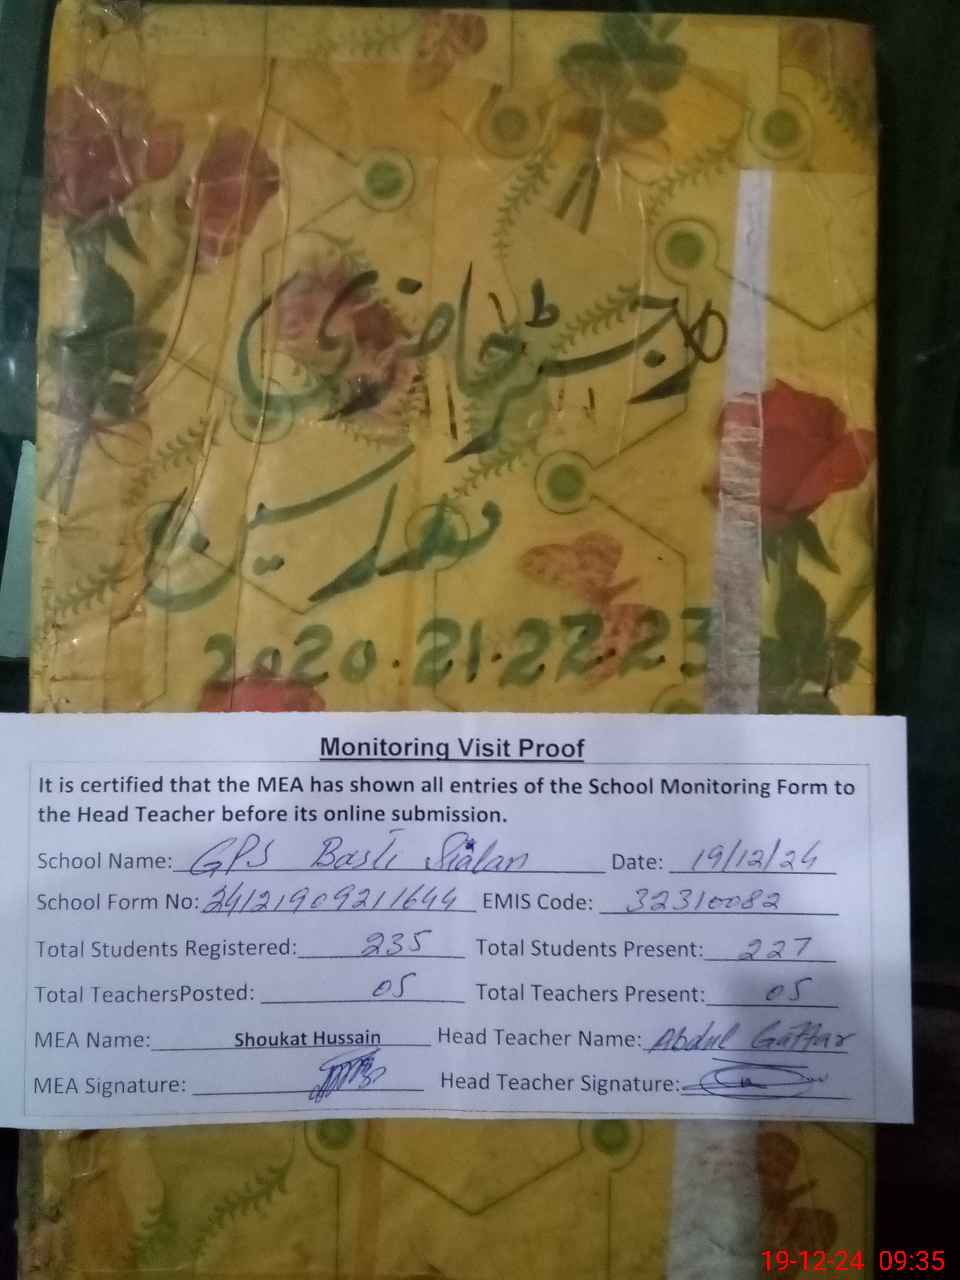 رجسٹر حاضری
مدرسین
2020.21.22.23
Monitoring Visit Proof
It is certified that the MEA has shown all entries of the School Monitoring Form to
the Head Teacher before its online submission.
School Name: GPS Basti Sialan Date: 19/12/24
School Form No: 24121909211644 EMIS Code: 32310082
Total Students Registered: 235 Total Students Present: 227
Total TeachersPosted: 05 Total Teachers Present: 05
MEA Name: Shoukat Hussain Head Teacher Name: Abdul Gaffar
MEA Signature: Head Teacher Signature:
19-12-24 09:35